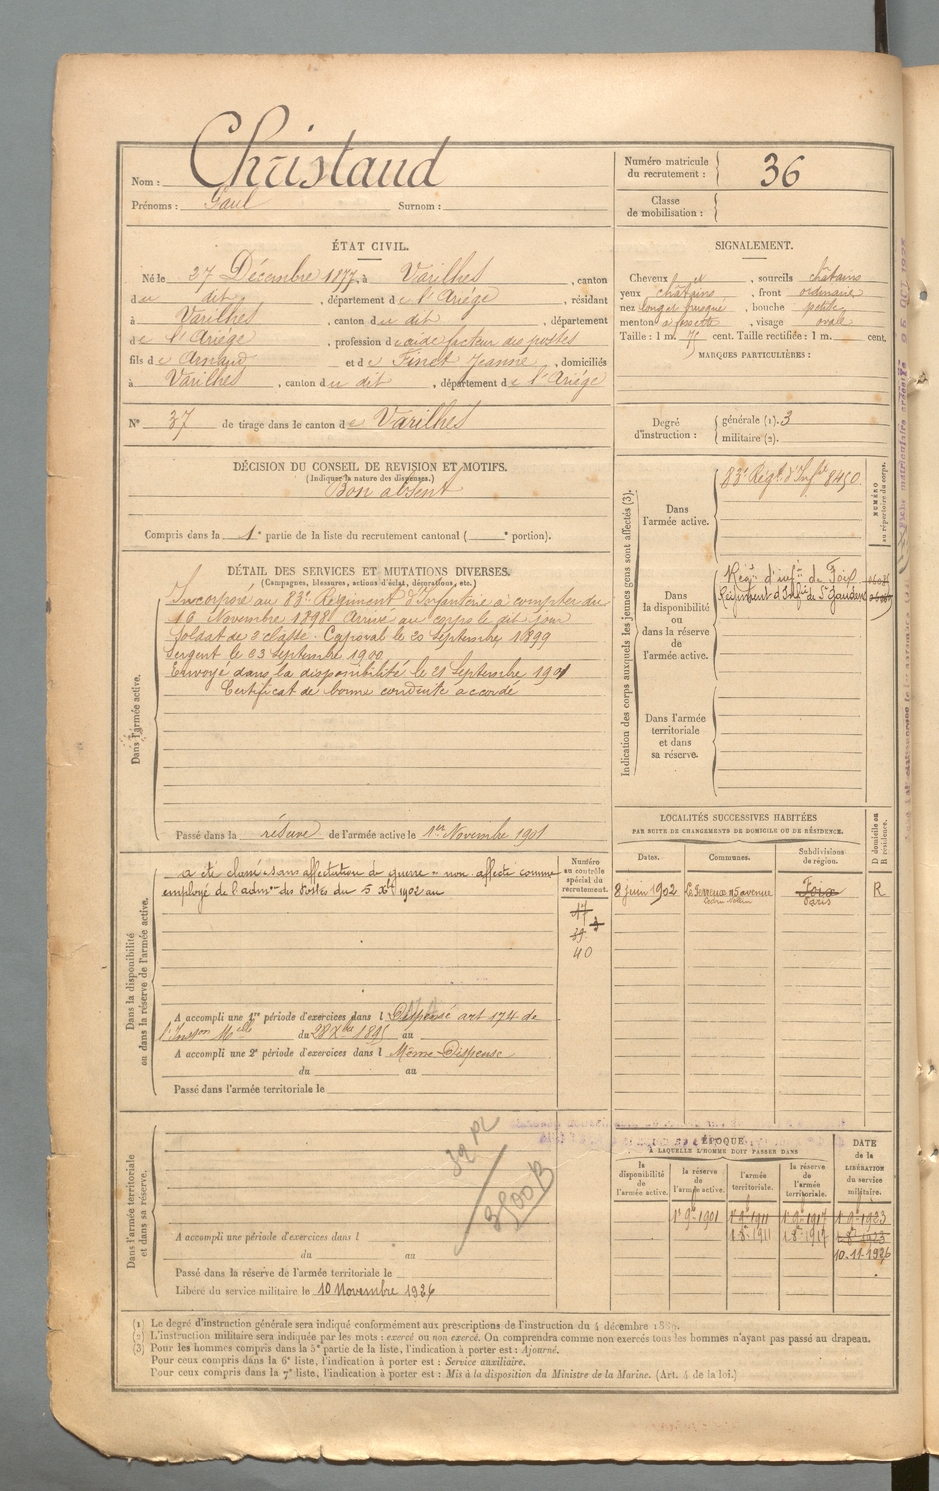 Nom : Christaud
Prénoms : Paul Surnom :
Numéro matricule du recrutement : 36
Classe de mobilisation :
ÉTAT CIVIL.
Né le 27 Décembre 1877, à Varilhes, canton
du dit, département de l'Ariége, résidant
à Varilhes, canton du dit, département
de l'Ariége, profession de aide facteur des postes
fils de Arnaud et de Finet Jeanne, domiciliés
à Varilhes, canton du dit, département de l'Ariége
N° 37 de tirage dans le canton de Varilhes
SIGNALEMENT.
Cheveux et, sourcils châtains
yeux châtains, front ordinaire
nez, bouche petite
menton à fossette, visage ovale
Taille : 1 m. cent. Taille rectifiée : 1 m. cent.
MARQUES PARTICULIÈRES :
Degré d'instruction : générale (1). 3
militaire (2).
DÉCISION DU CONSEIL DE REVISION ET MOTIFS.
(Indiquer la nature des dispenses.)
Bon absent
Compris dans la 1e partie de la liste du recrutement cantonal ( e portion).
DÉTAIL DES SERVICES ET MUTATIONS DIVERSES.
(Campagnes, blessures, actions d'éclat, décorations, etc.)
Dans l'armée active.
Incorporé au 83e Régiment d'Infanterie à compter du
16 Novembre 1898 Arrivé au corps le dit jour
Soldat de 2e classe. Caporal le 20 Septembre 1899
Sergent le 23 Septembre 1900
Envoyé dans la disponibilité le 21 Septembre 1901
Certificat de bonne conduite accordé
Passé dans la réserve de l'armée active le 1er Novembre 1901
Indication des corps auxquels les jeunes gens sont affectés (3).
NUMÉRO au répertoire du corps.
Dans l'armée active.
83e Régt d'Infie 8450
Dans la disponibilité ou dans la réserve de l'armée active.
Régt d'infie de Foix
Régiment d'Infie de St Gaudens
Dans l'armée territoriale et dans sa réserve.
LOCALITÉS SUCCESSIVES HABITÉES
PAR SUITE DE CHANGEMENTS DE DOMICILE OU DE RÉSIDENCE.
D domicile ou R résidence.
Dates. Communes. Subdivisions de région.
8 juin 1902 avenue Foix R
Ledru Rollin Paris
Dans la disponibilité ou dans la réserve de l'armée active.
Numéro au contrôle spécial du recrutement.
a été classé sans affectation de guerre non affecté comme
employé de l'admon des Postes du 5 Xbre 1902 au
40
A accompli une 1re période d'exercices dans l Dispensé art 174 de
l'Inston Melle du 28 Xbre 1895 au
A accompli une 2e période d'exercices dans l Même Dispense
du au
Passé dans l'armée territoriale le
Dans l'armée territoriale et dans sa réserve.
A accompli une période d'exercices dans l
du au
Passé dans la réserve de l'armée territoriale le
Libéré du service militaire le 10 Novembre 1926
ÉPOQUE
A LAQUELLE L'HOMME DOIT PASSER DANS
la disponibilité de l'armée active.
la réserve de l'armée active.
l'armée territoriale.
la réserve de l'armée territoriale.
DATE de la LIBÉRATION du service militaire.
1r 9e 1901 1r 9e 1911 1r 9e 1917 1r 9e 1923
1 8e 1911 1 8e 1917 1 8e 1923
10-11-1926
(1) Le degré d'instruction générale sera indiqué conformément aux prescriptions de l'instruction du 4 décembre 1889.
(2) L'instruction militaire sera indiquée par les mots : exercé ou non exercé. On comprendra comme non exercés tous les hommes n'ayant pas passé au drapeau.
(3) Pour les hommes compris dans la 5e partie de la liste, l'indication à porter est : Ajourné.
Pour ceux compris dans la 6e liste, l'indication à porter est : Service auxiliaire.
Pour ceux compris dans la 7e liste, l'indication à porter est : Mis à la disposition du Ministre de la Marine. (Art. 4 de la loi.)